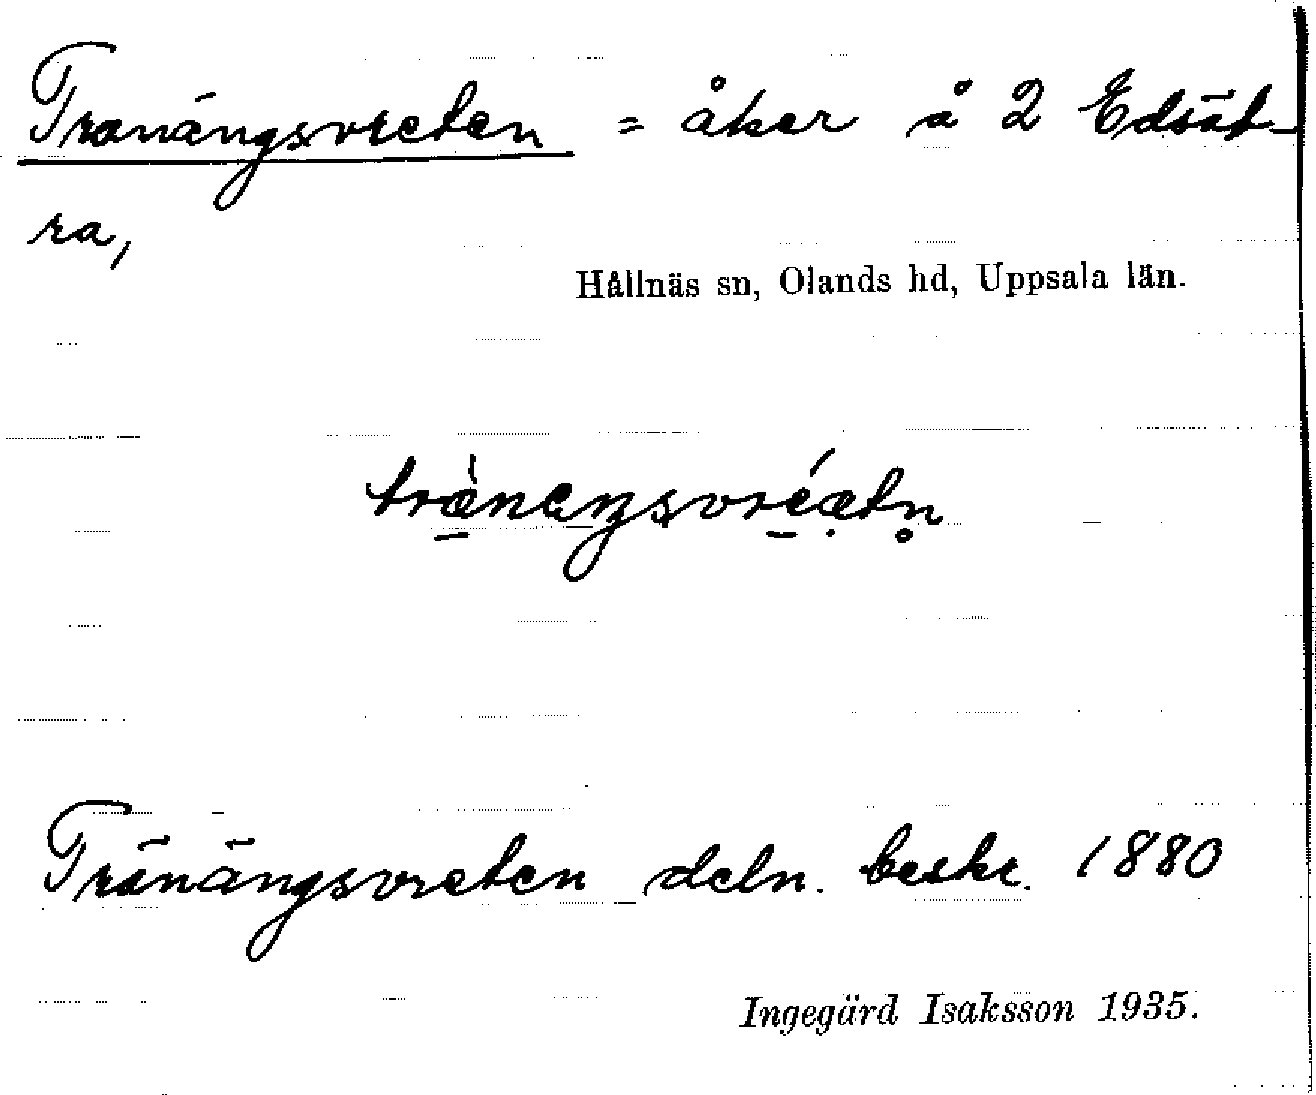 Tranängsvreten = åker å 2 Edsät-
ra,
Hållnäs sn, Olands hd, Uppsala län.
Tränängsvreten deln. beskr. 1880
Ingegärd Isaksson 1935.